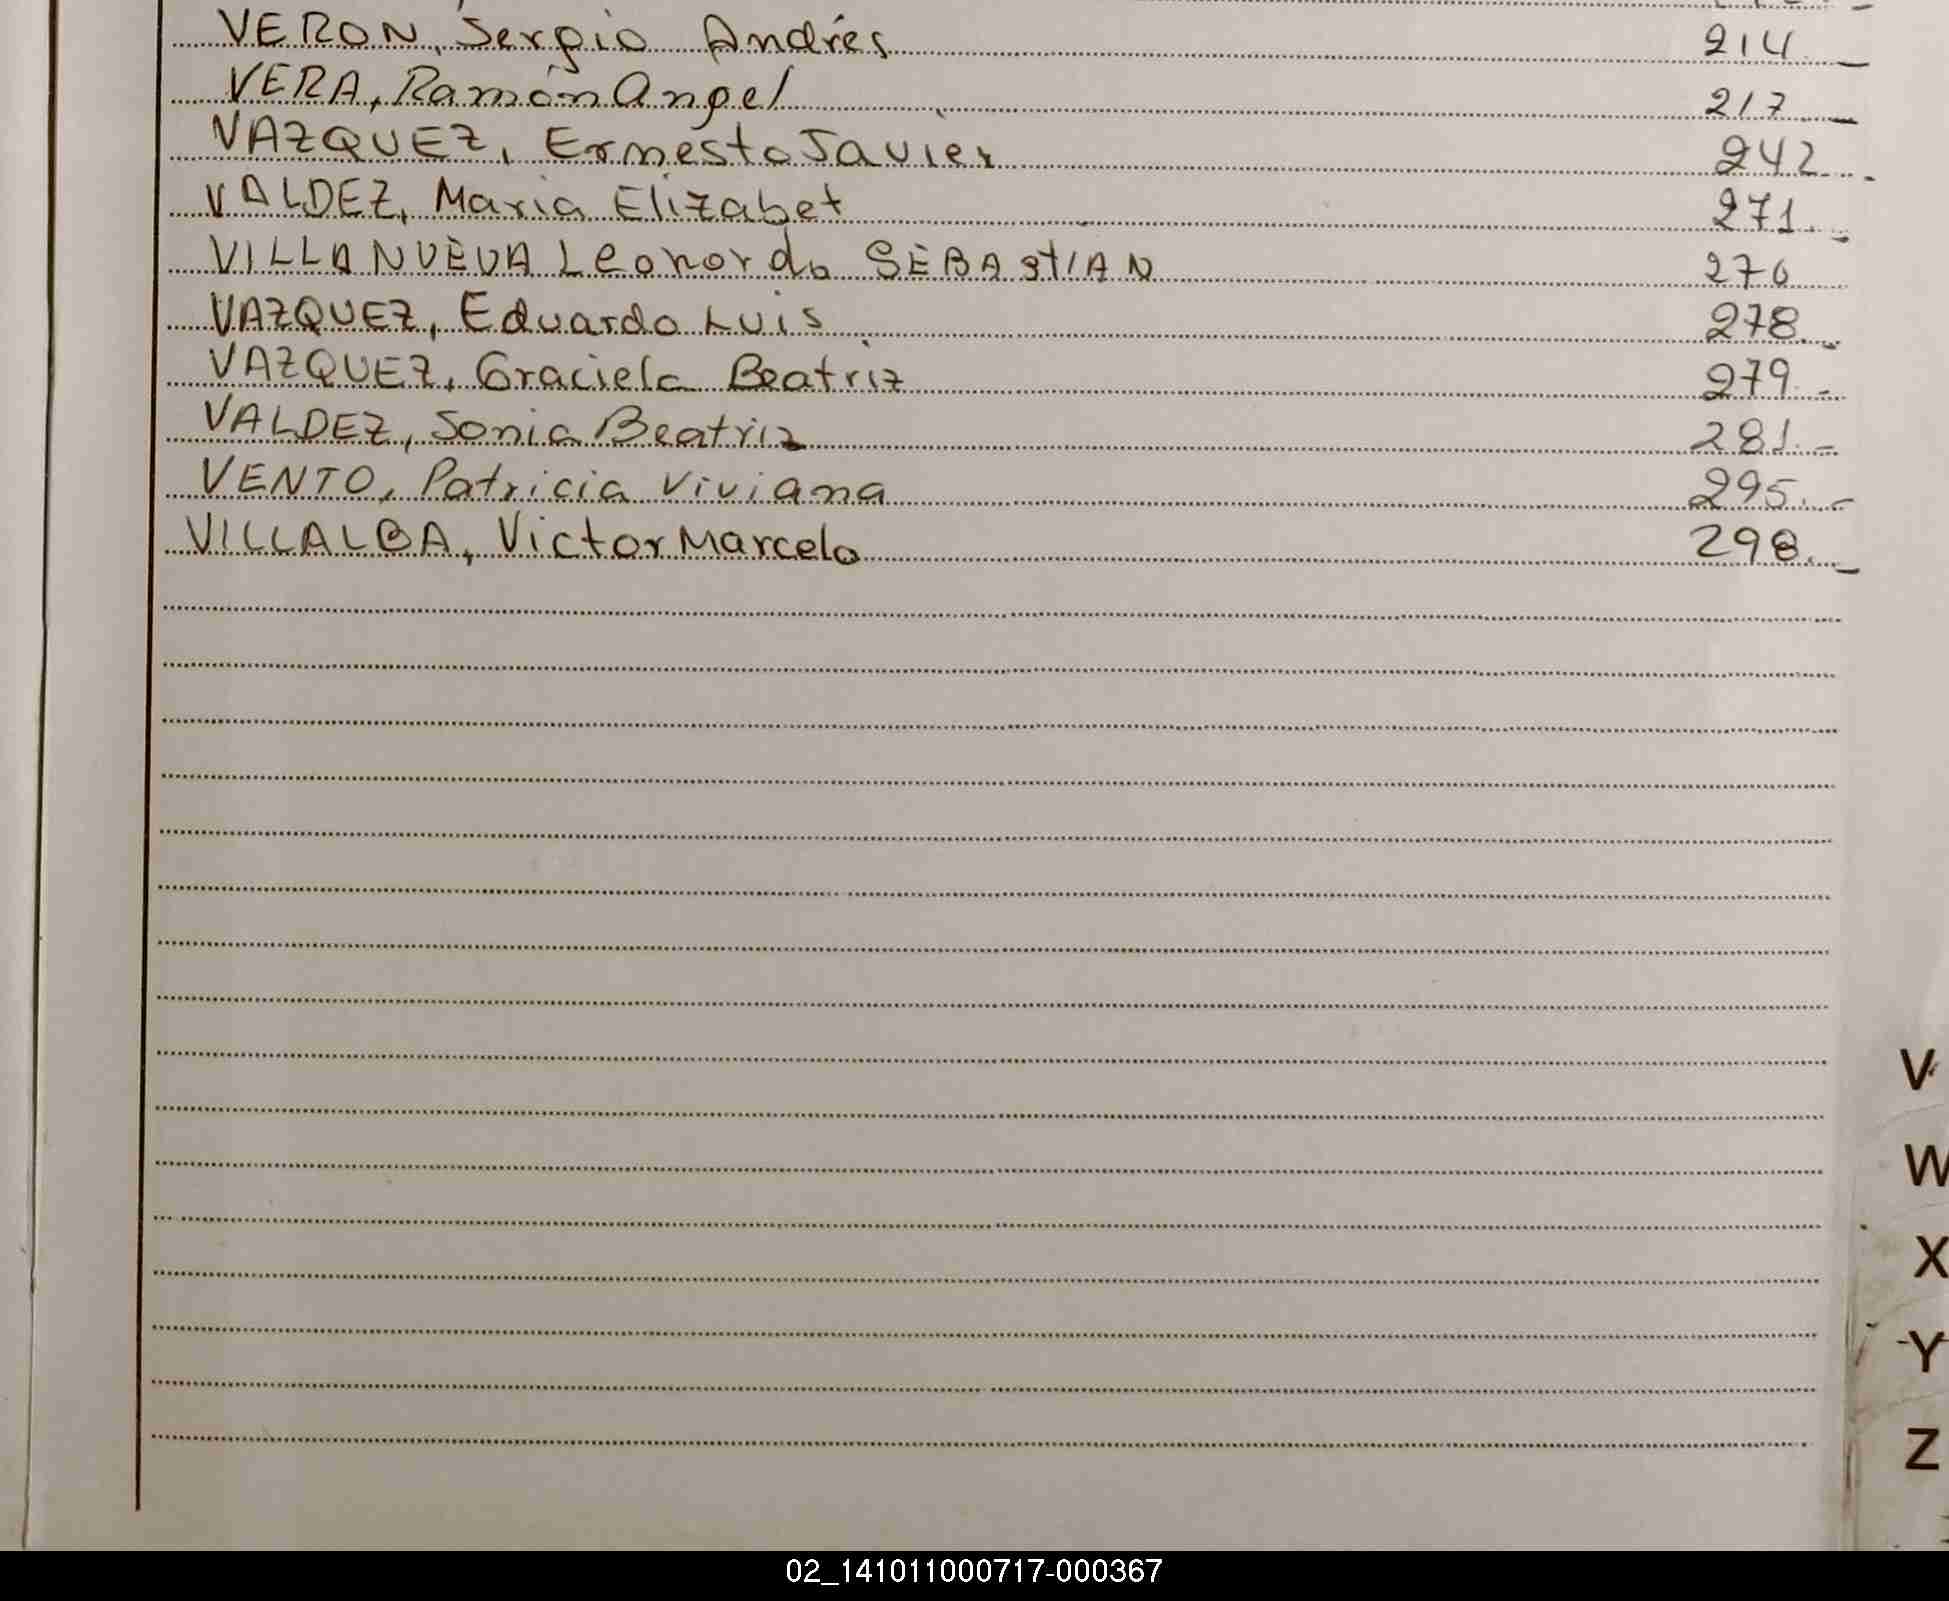 VERON, Sergio Andrés 214.-
VERA, Ramón Angel 217.-
VAZQUEZ, Ernesto Javier 242.-
VALDEZ, Maria Elizabet 271.-
VILLANUEVA Leonardo SEBAstIAN 276
VAZQUEZ, Eduardo Luis 278.-
VAZQUEZ, Graciela Beatriz 279.-
VALDEZ, Sonia Beatriz 281.-
VENTO, Patricia Viviana 295.-
VILLALBA, Victor Marcelo 298.-
V
W
X
Y
Z
02_141011000717-000367